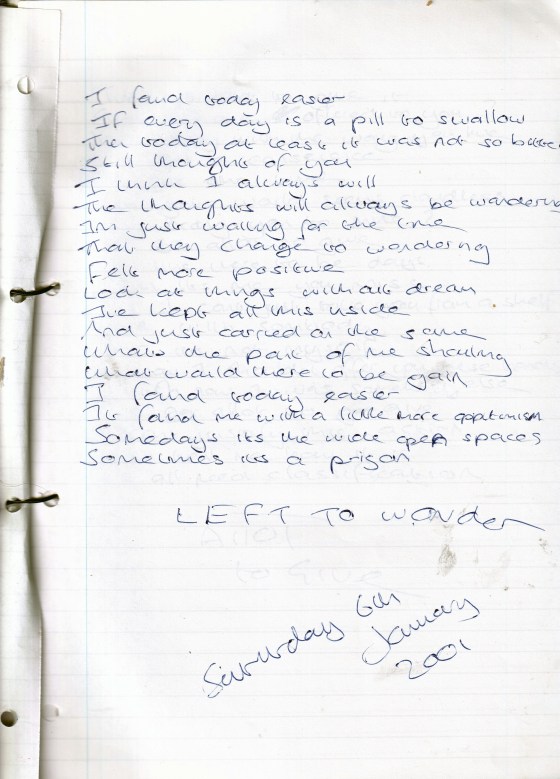 I found today easier
If every day is a pill to swallow
Then today at least it was not so bitter
Still thought of you
I think I always will
The thoughts will always be wondering
I'm just waiting for the time
That they change to wandering
Felt more positive
Look at things without dream
I've kept all this inside
And just carried on the same
What's the point of me shouting
What would there to be gain
I found today easier
It found me with a little more optimism
Somedays its the wide open spaces
Sometimes its a prison
LEFT TO WONDER
Saturday 6th
January
2001